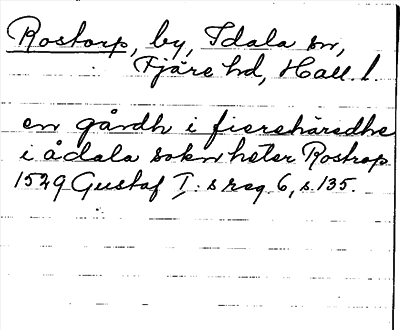 Rostorp, by, Idala sn,
Fjäre hd, Hall. l.
en gårdh i fierehäredhe
i ådala sokn heter Rostrop
1529 Gustaf I: s reg. 6, s. 135.